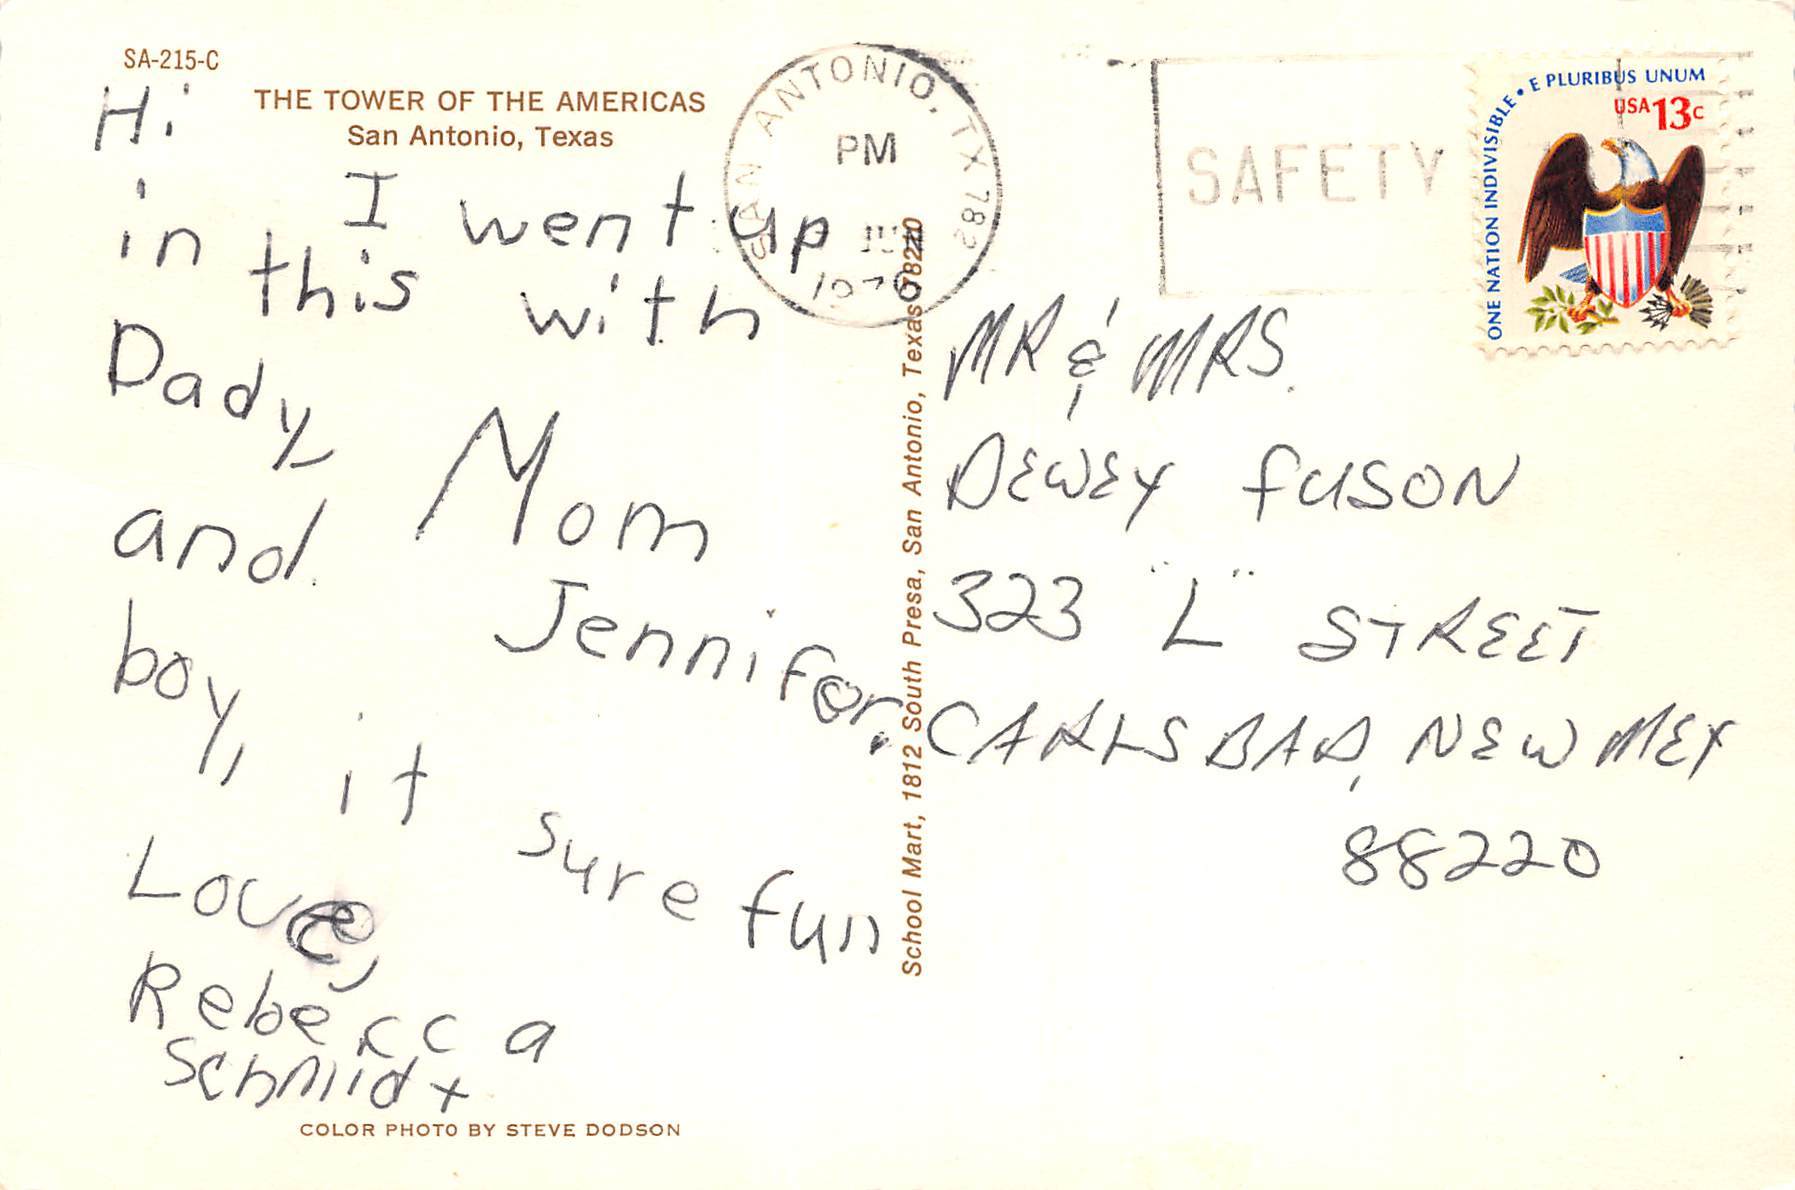 SA-215-C
THE TOWER OF THE AMERICAS
San Antonio, Texas
Hi
I went up
in this with
Dady, Mom
and Jennifer.
boy, it sure fun
Love,
Rebecca
Schmidt
COLOR PHOTO BY STEVE DODSON
School Mart, 1812 South Presa, San Antonio, Texas 78210
SAN ANTONIO, TX 782
PM
1976
SAFETY
ONE NATION INDIVISIBLE • E PLURIBUS UNUM
USA 13c
MR & MRS.
DEWEY FUSON
323 "L" STREET
CARLSBAD, NEW MEX
88220